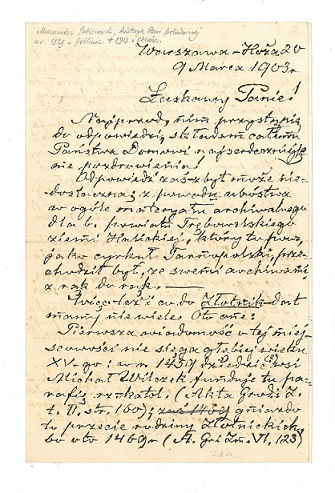 Aleksander Jabłonowski, historyk Rusi południowej
ur. 1829 w Goźlinie † 1913 w
Warszawa - Hoża 20
9 Marca 1903 r
Łaskawy Panie!
Najprzód, nim przystąpię
do odpowiedzi, składam całemu
Państwa Domowi najserdeczniejsze
me pozdrowienie!
Odpowiedź zaś zbyt może nie-
dostateczną; z powodu ubóstwa
w ogóle materyału archiwalnego
dla b. powiatu Trębowelskiego
ziemi Halickiej, który tu prze,
jako cyrkuł Tarnopolski, prze-
chodził był, ze swemi archiwami
z rąk do rąk. —
Więc też i co do Złotnik dost
mamy niewiele. Oto one:
Pierwsza wiadomość o tej miej-
scowości nie sięga głębiej wieku
XV-go: w r. 1459 dziedzic wsi
Michał Wilczek funduje tu pa-
rafię rz. katol. (Akta Grodz. Z.
t. II. str. 160); gniazdo
to przecie rodziny Złotnickich
bo oto 1469 r (A. Gr. i Zm. VI, 123)